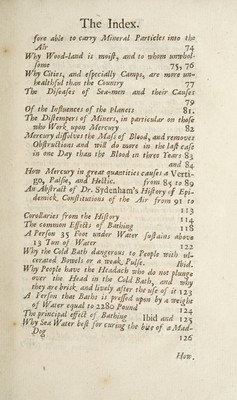 The Index.
fore able to carry Mineral Particles into the
Air 74
Why Wood-land is moist, and to whom unwhol-
some 75, 76
Why Cities, and especially Camps, are more un-
healthful than the Country 77
The Diseases of Sea-men and their Causes
79
Of the Influences of the Planets 81.
The Distempers of Miners, in particular on those
who Work upon Mercury 82
Mercury dissolves the Mass of Blood, and removes
Obstructions and will do more in the last case
in one Day than the Blood in three Years 83
and 84
How Mercury in great quantities causes a Verti-
go, Palsie, and Hectic. from 85 to 89
An Abstract of Dr. Sydenham's History of Epi-
demick Constitutions of the Air from 91 to
113
Corollaries from the History 114
The common Effects of Bathing 118
A Person 35 Foot under Water sustains above
13 Tun of Water 122
Why the Cold Bath dangerous to People with ul-
cerated Bowels or a weak Pulse. Ibid.
Why People have the Headach who do not plunge
over the Head in the Cold Bath, and why
they are brisk and lively after the use of it 123
A Person that Baths is pressed upon by a weight
of Water equal to 2280 Pound 124
The principal effect of Bathing Ibid and 125
Why Sea Water best for curing the bite of a Mad-
Dog 126
How.